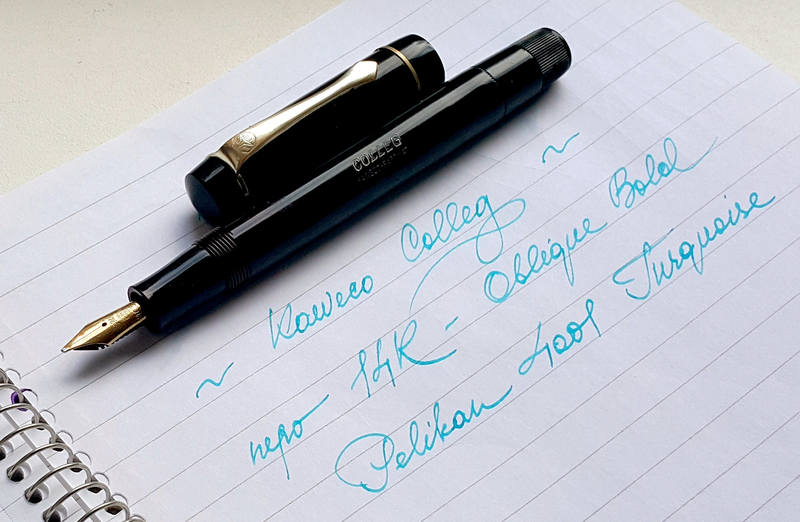 COLLEG
~ Kaweco Colleg ~
перо 14K - Oblique Bold
Pelikan 4001 Turquoise